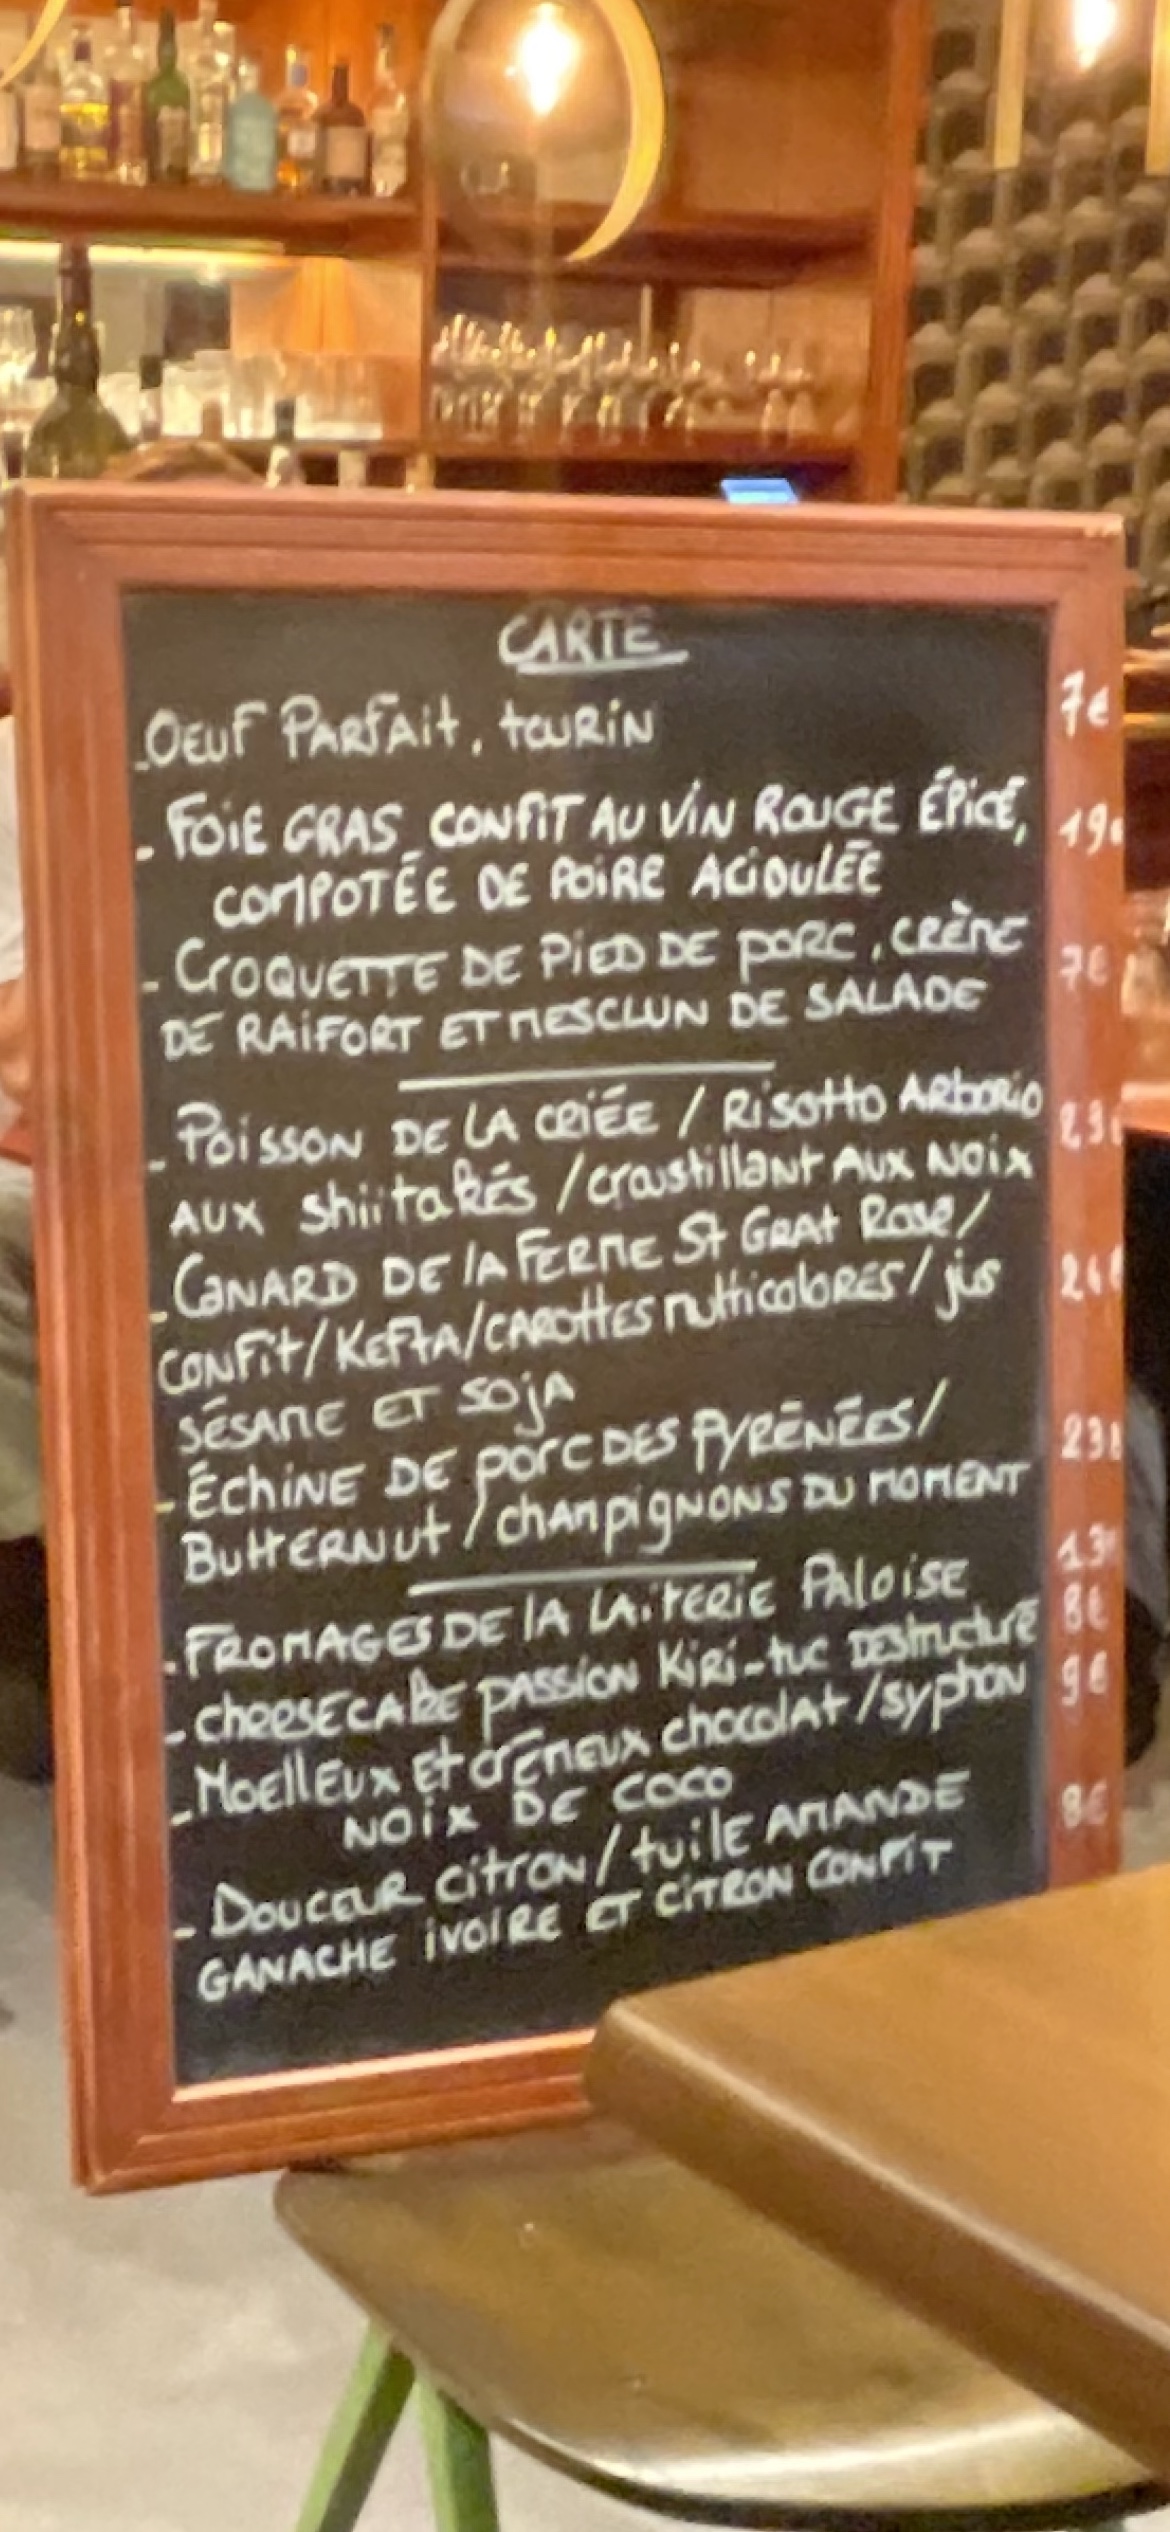 CARTE
- OEUF PARFAIT, tourin 7€
- FOIE GRAS CONFIT AU VIN ROUGE ÉPICÉ, 19€
COMPOTÉE DE POIRE ACIDULÉE
- CROQUETTE DE PIED DE PORC, CRÈME 7€
DE RAIFORT ET MESCLUN DE SALADE
- POISSON DE LA CRIÉE / RISOTTO ARBORIO 23€
AUX shiitakés / croustillant AUX NOIX
- CANARD DE LA FERME St GRAT Rosé/
CONFIT/KEFTA/CAROTTES multicolores/jus
SÉSAME ET SOJA
- ÉCHINE DE PORC DES PYRÉNÉES/ 23€
BUTTERNUT / CHAMPIGNONS DU MOMENT
- FROMAGES DE LA LAITERIE PALOISE 13€
- cheesecake passion Kiri-tuc destructuré 8€
- Moelleux et crémeux chocolat/syphon 9€
NOIX DE COCO
- DOUCEUR citron/tuile AMANDE 8€
GANACHE IVOIRE ET CITRON CONFIT